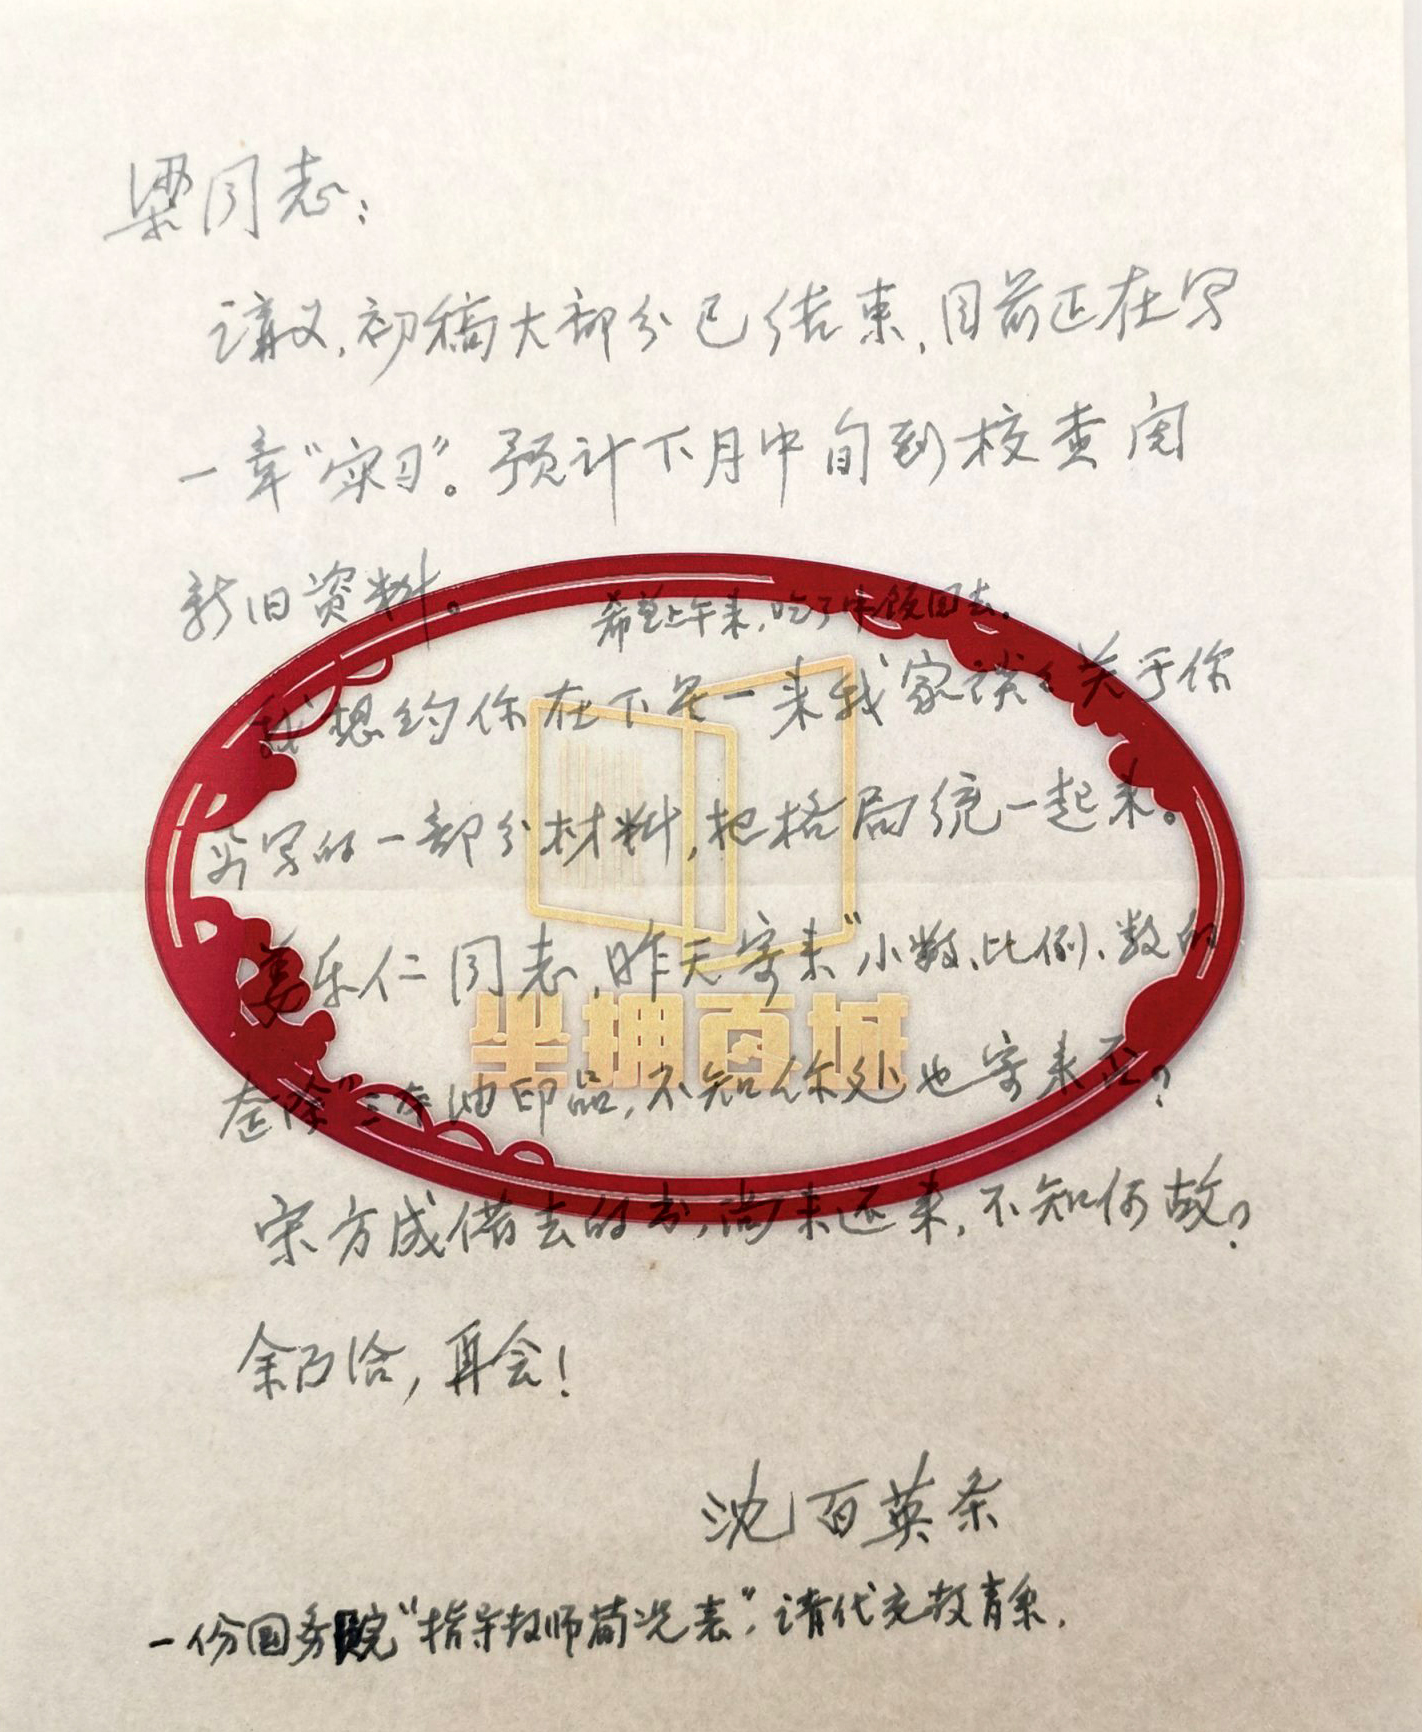 梁同志：
讲义,初稿大部分已结束,目前正在写
一章“实习”。预计下月中旬到校查阅
新旧资料。
希望上午来,吃了中饭回去.
我想约你在下星一来我家谈谈关于你
写的一部分材料,把格局统一起来。
姜乐仁同志,昨天寄来“小数、比例、数的
整除”三本油印品,不知你处也寄来否?
宋方成借去的书,尚未还来,不知何故?
余面洽,再会!
坐拥百城
沈百英条
一份国务院“指导教师简况表”,请代交教育系.